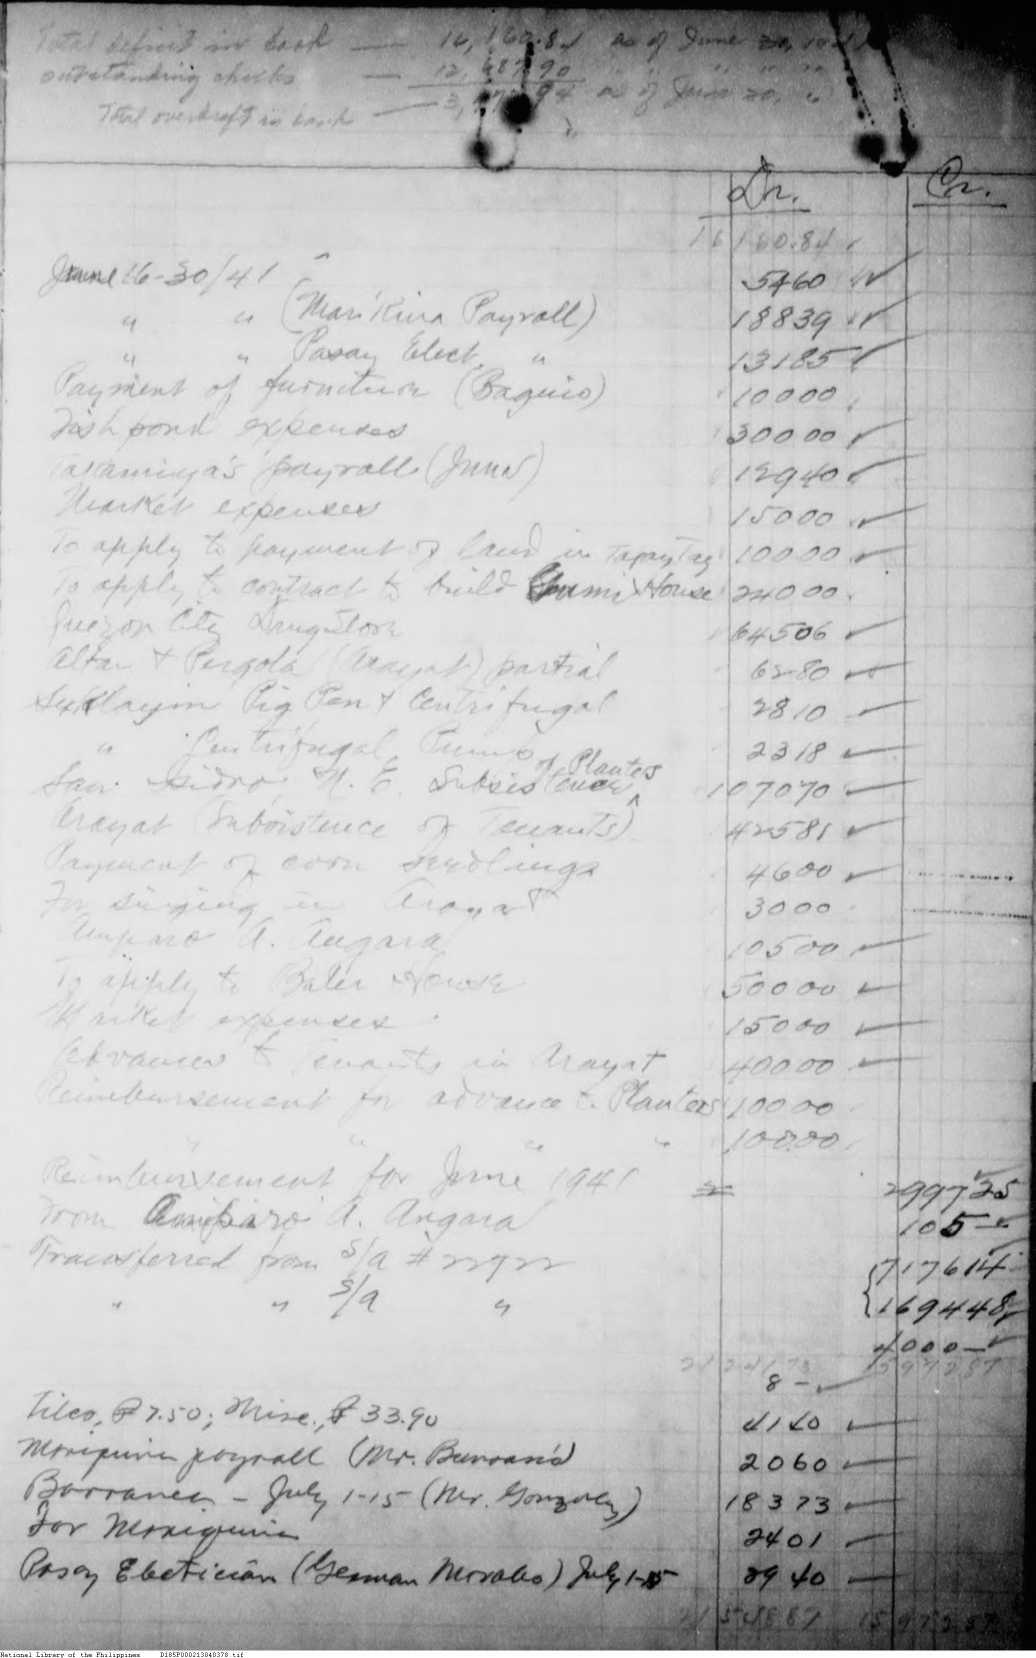 Total deficit in bank — 16,160.84 as of June 30, 1941
outstanding checks — 12,687.90 " " " " "
Total overdraft in bank — 3,47 94 as of June 30, "
Dr. Cr.
16160.84
June 16-30/41 5460
" " (Marikina Payroll) 18839
" " Pasay Elect. " 13185
Payment of furniture (Baguio) 10000
Fishpond expenses 30000
payroll (June) 12940
Market expenses 15000
To apply to payment of land in Tagaytay 10000
To apply to contract to build House 24000
Quezon City Drugstore 64506
Altar & Pergola (Arayat) partial 6280
Pig Pen & Centrifugal 2810
" Centrifugal Pump 2318
San Isidro, N. E. Subsistence of Planters 107070
Arayat (Subsistence of Tenants) 42581
Payment of corn seedlings 4600
For in Arayat 3000
Amparo A. Angara 10500
To apply to Baler House 50000
Market expenses 15000
Advances to Tenants in Arayat 40000
Reimbursement for advance to Planters 10000
" " " " 10000
Reimbursement for June 1941 299725
From Amparo A. Angara 105 —
Transferred from S/a # 717614
" " S/a " 169448
4000 —
8 —
Tilco, ₱7.50; Misc., ₱33.90 4140
payroll (Mr. ) 2060
Barranca – July 1-15 (Mr. Gonzales) 18373
For 2401
Pasay Electrician (German Morales) July 1-15 8940
National Library of the Philippines D185P000213040378.tif